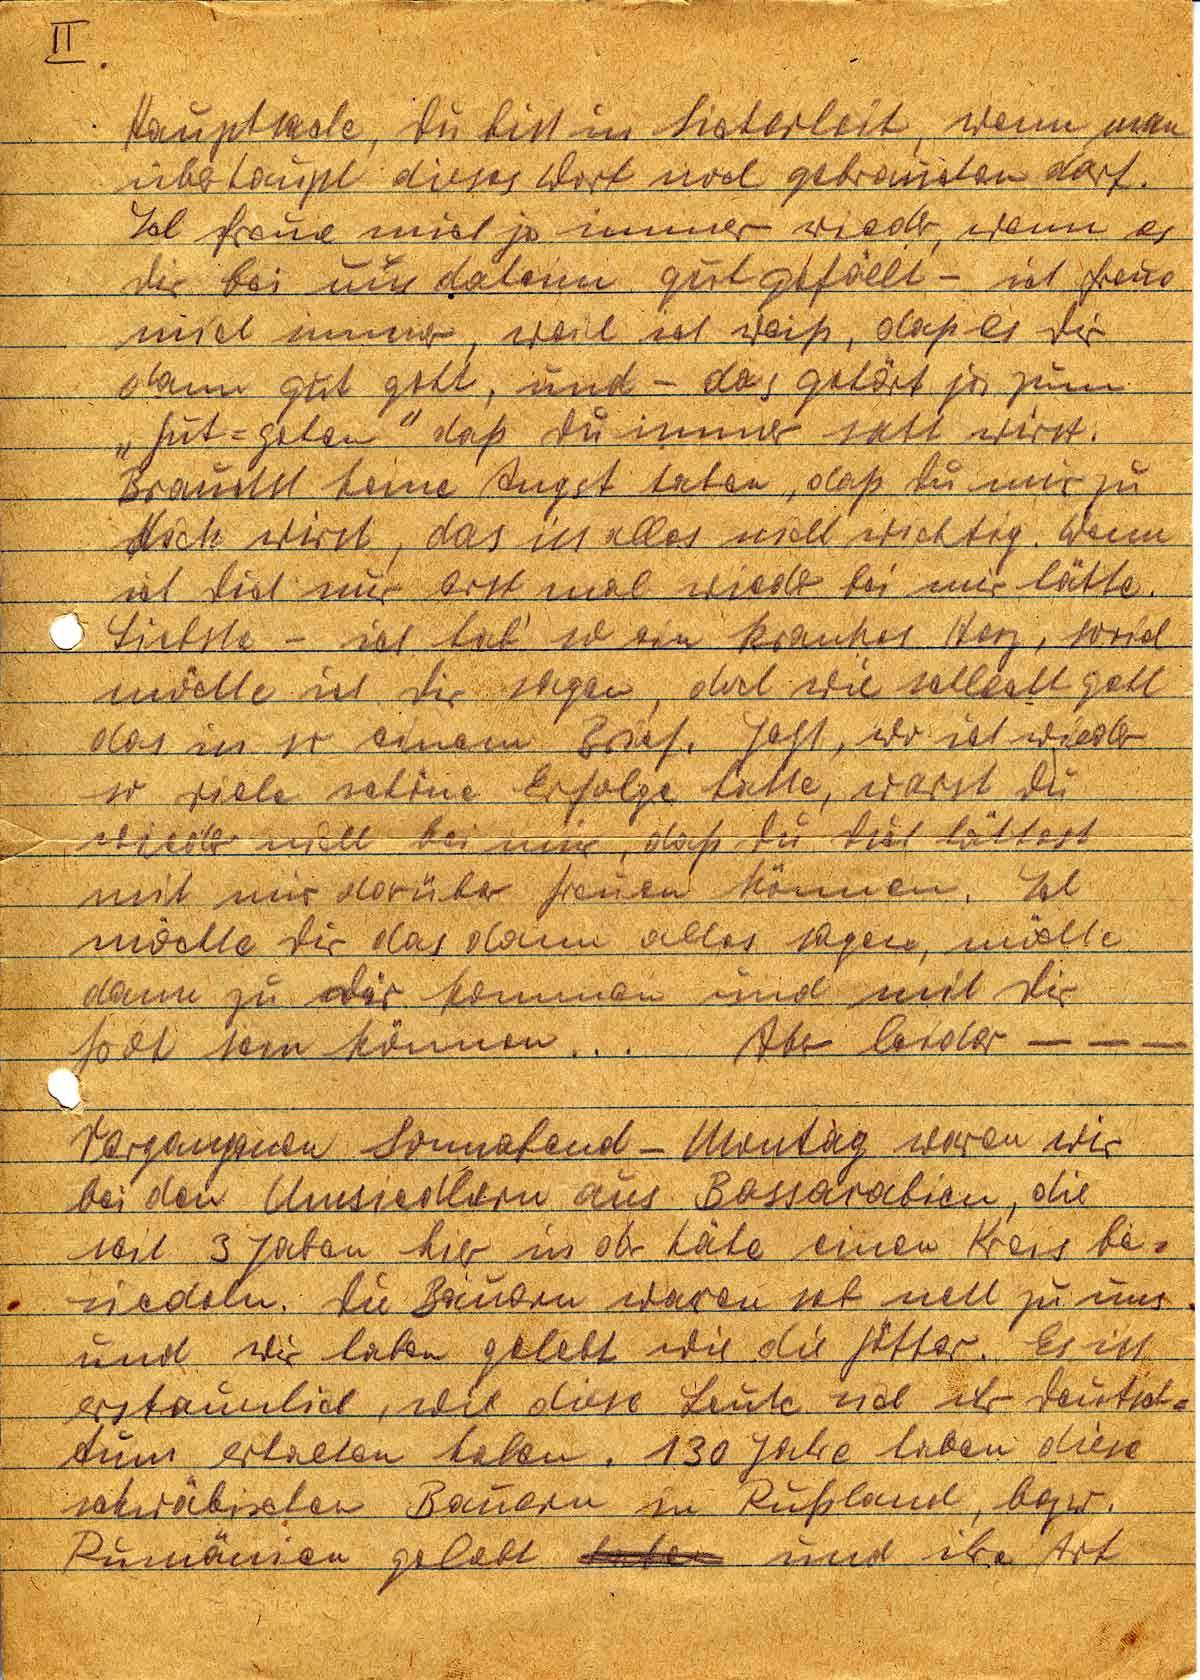 II.
Hauptsache, Du bist in Sicherheit, wenn man
überhaupt dieses Wort noch gebrauchen darf.
Ich freue mich ja immer wieder, wenn es
Dir bei uns daheim gut gefällt – ich freue
mich immer, weil ich weiß, daß es Dir
dann gut geht, und – das gehört ja zum
„Gut=gehen" daß Du immer satt wirst.
Brauchst keine Angst haben, daß Du mir zu
dick wirst, das ist alles nicht wichtig. Wenn
ich Dich nur erst mal wieder bei mir hätte.
Liebste – ich hab' so ein krankes Herz, soviel
möchte ich Dir sagen, doch wie schlecht geht
das in so einem Brief. Jetzt, wo ich wieder
so viele schöne Erfolge hatte, warst Du
wieder nicht bei mir, daß Du Dich hättest
mit mir darüber freuen können. Ich
möchte Dir das dann alles sagen, möchte
dann zu Dir kommen und mit Dir
froh sein können... Aber leider – – –
Vergangenen Sonnabend – Montag waren wir
bei den Umsiedlern aus Bessarabien, die
seit 3 Jahren hier in der Nähe einen Kreis be-
siedeln. Die Bauern waren seh nett zu uns
und wir haben gelebt wie die Götter. Es ist
erstaunlich, wie diese Leute sich ihr Deutsch=
tum erhalten haben. 130 Jahre haben diese
schwäbischen Bauern in Rußland, bezw.
Rumänien gelebt haben und ihre Art